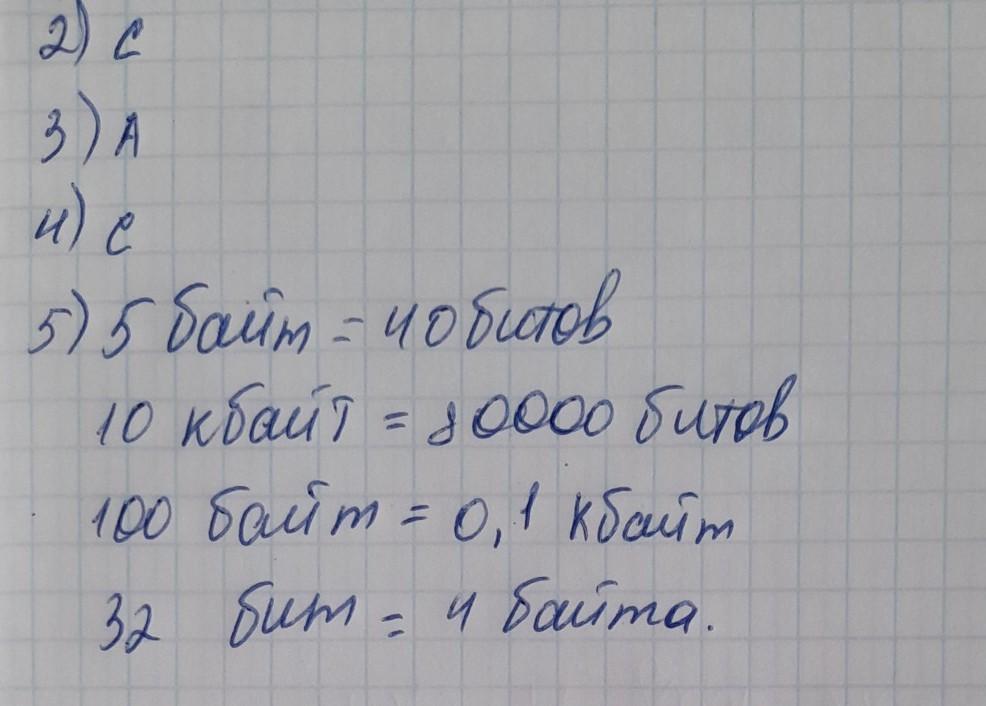 2) С
3) А
4) С
5) 5 байт = 40 битов
10 кбайт = 80000 битов
100 байт = 0,1 кбайт
32 бит = 4 байта.